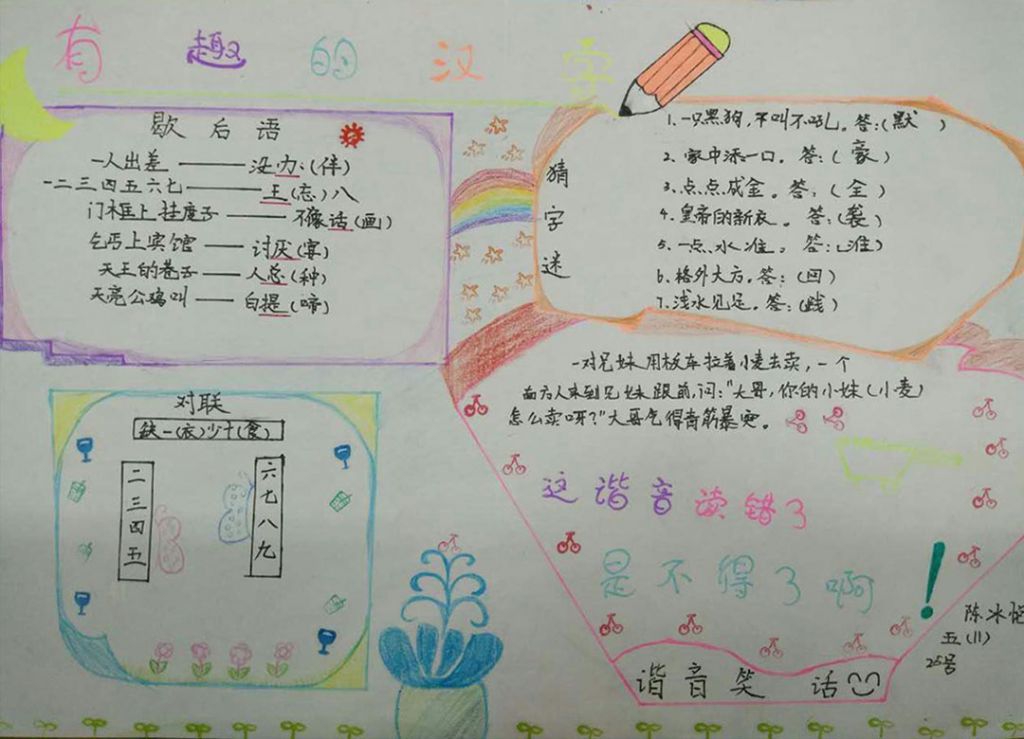 有趣的汉字
歇后语
一人出差——没办:(伴)
一二三四五六七——王(忘)八
门框上挂席子——不像话(画)
乞丐上宾馆——讨厌(宴)
天王的巷子——人总(种)
天亮公鸡叫——白提(啼)
猜字迷
1.一只黑狗,不叫不吼。答:(默)
2.家中添一口。答:(豪)
3.点点成金。答:(全)
4.皇帝的新衣。答:(袭)
5.一点水准。答:(淮)
6.格外大方。答:(回)
7.浅水见足。答:(践)
对联
缺一(衣)少十(食)
二三四五
六七八九
一对兄妹用板车拉着小麦去卖,一个
南方人来到兄妹跟前,问:"大哥,你的小妹(小麦)
怎么卖呀?"大哥气得青筋暴突。
这谐音读错了
是不得了啊!
谐音笑话
陈冰
五(11)
25号